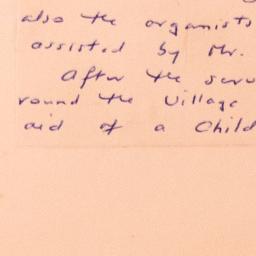 also the organists
assisted by Mr.
After the
round the Village
aid of a Child